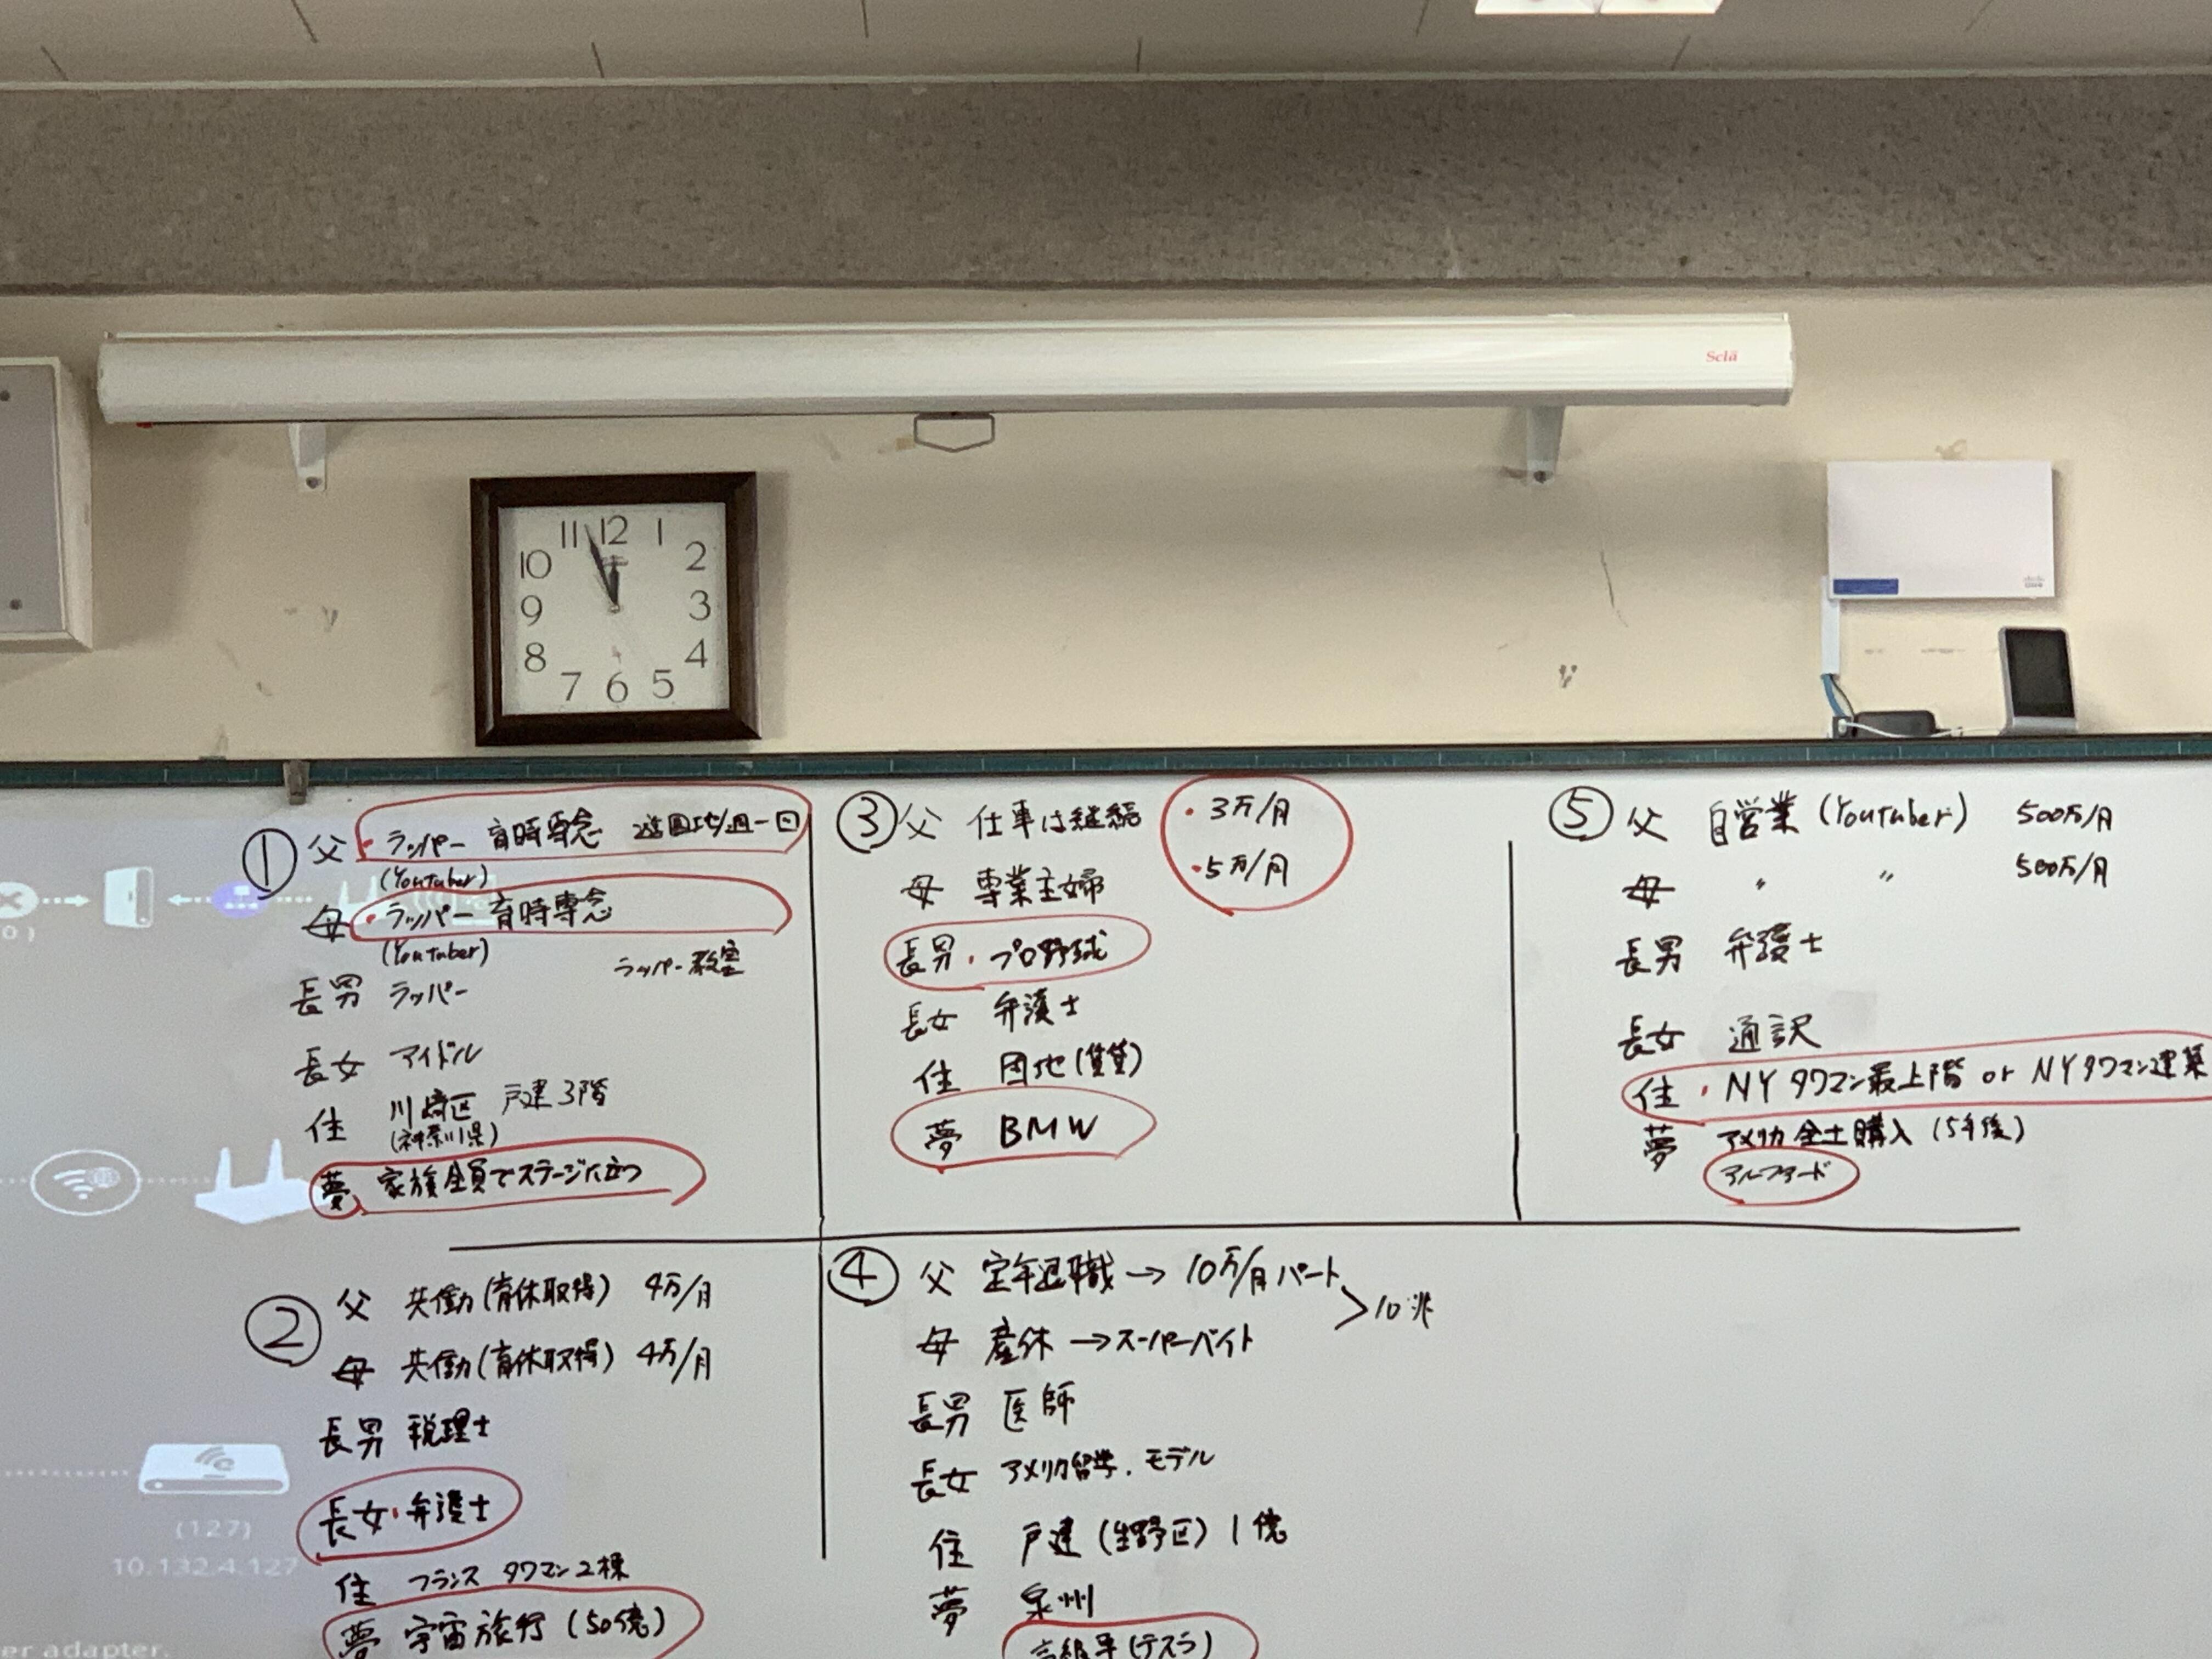 Sclä
11 12 1
10 2
9 3
8 4
7 6 5
① 父 ・ラッパー 育時専念 遊園地/週一回
(Youtuber)
母 ・ラッパー 育時専念
(Youtuber)
ラッパー教室
長男 ラッパー
長女 アイドル
住 川崎区 戸建3階
(神奈川県)
夢 家族全員でステージに立つ
② 父 共働(育休取得) 4万/月
母 共働(育休取得) 4万/月
長男 税理士
長女・弁護士
住 フランス タワマン2棟
夢 宇宙旅行(50億)
③ 父 仕事は継続 ・3万/月
母 専業主婦 ・5万/月
長男・プロ野球
長女 弁護士
住 団地(賃貸)
夢 BMW
④ 父 定年退職→10万/月パート
>10兆
母 産休→スーパーバイト
長男 医師
長女 アメリカ留学.モデル
住 戸建(生野区)1億
夢 泉州
高級車(テスラ)
⑤ 父 自営業(Youtuber) 500万/月
母 〃 〃 500万/月
長男 弁護士
長女 通訳
住・NYタワマン最上階 or NYタワマン建築
夢 アメリカ全土購入(5年後)
アルファード
(127)
10.132.4.127
er adapter.